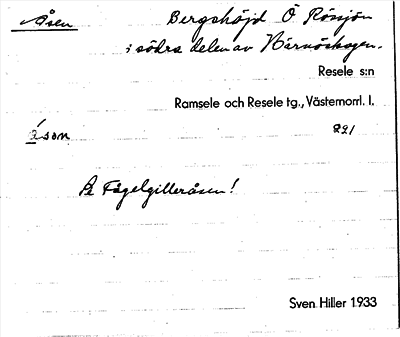 Åsen Bergshöjd Ö Rössjön
i södra delen av Närvöskogen.
Resele s:n
Ramsele och Resele tg., Västernorrl. l.
åˈsɔn 821
Se Fågelgilleråsen!
Sven Hiller 1933